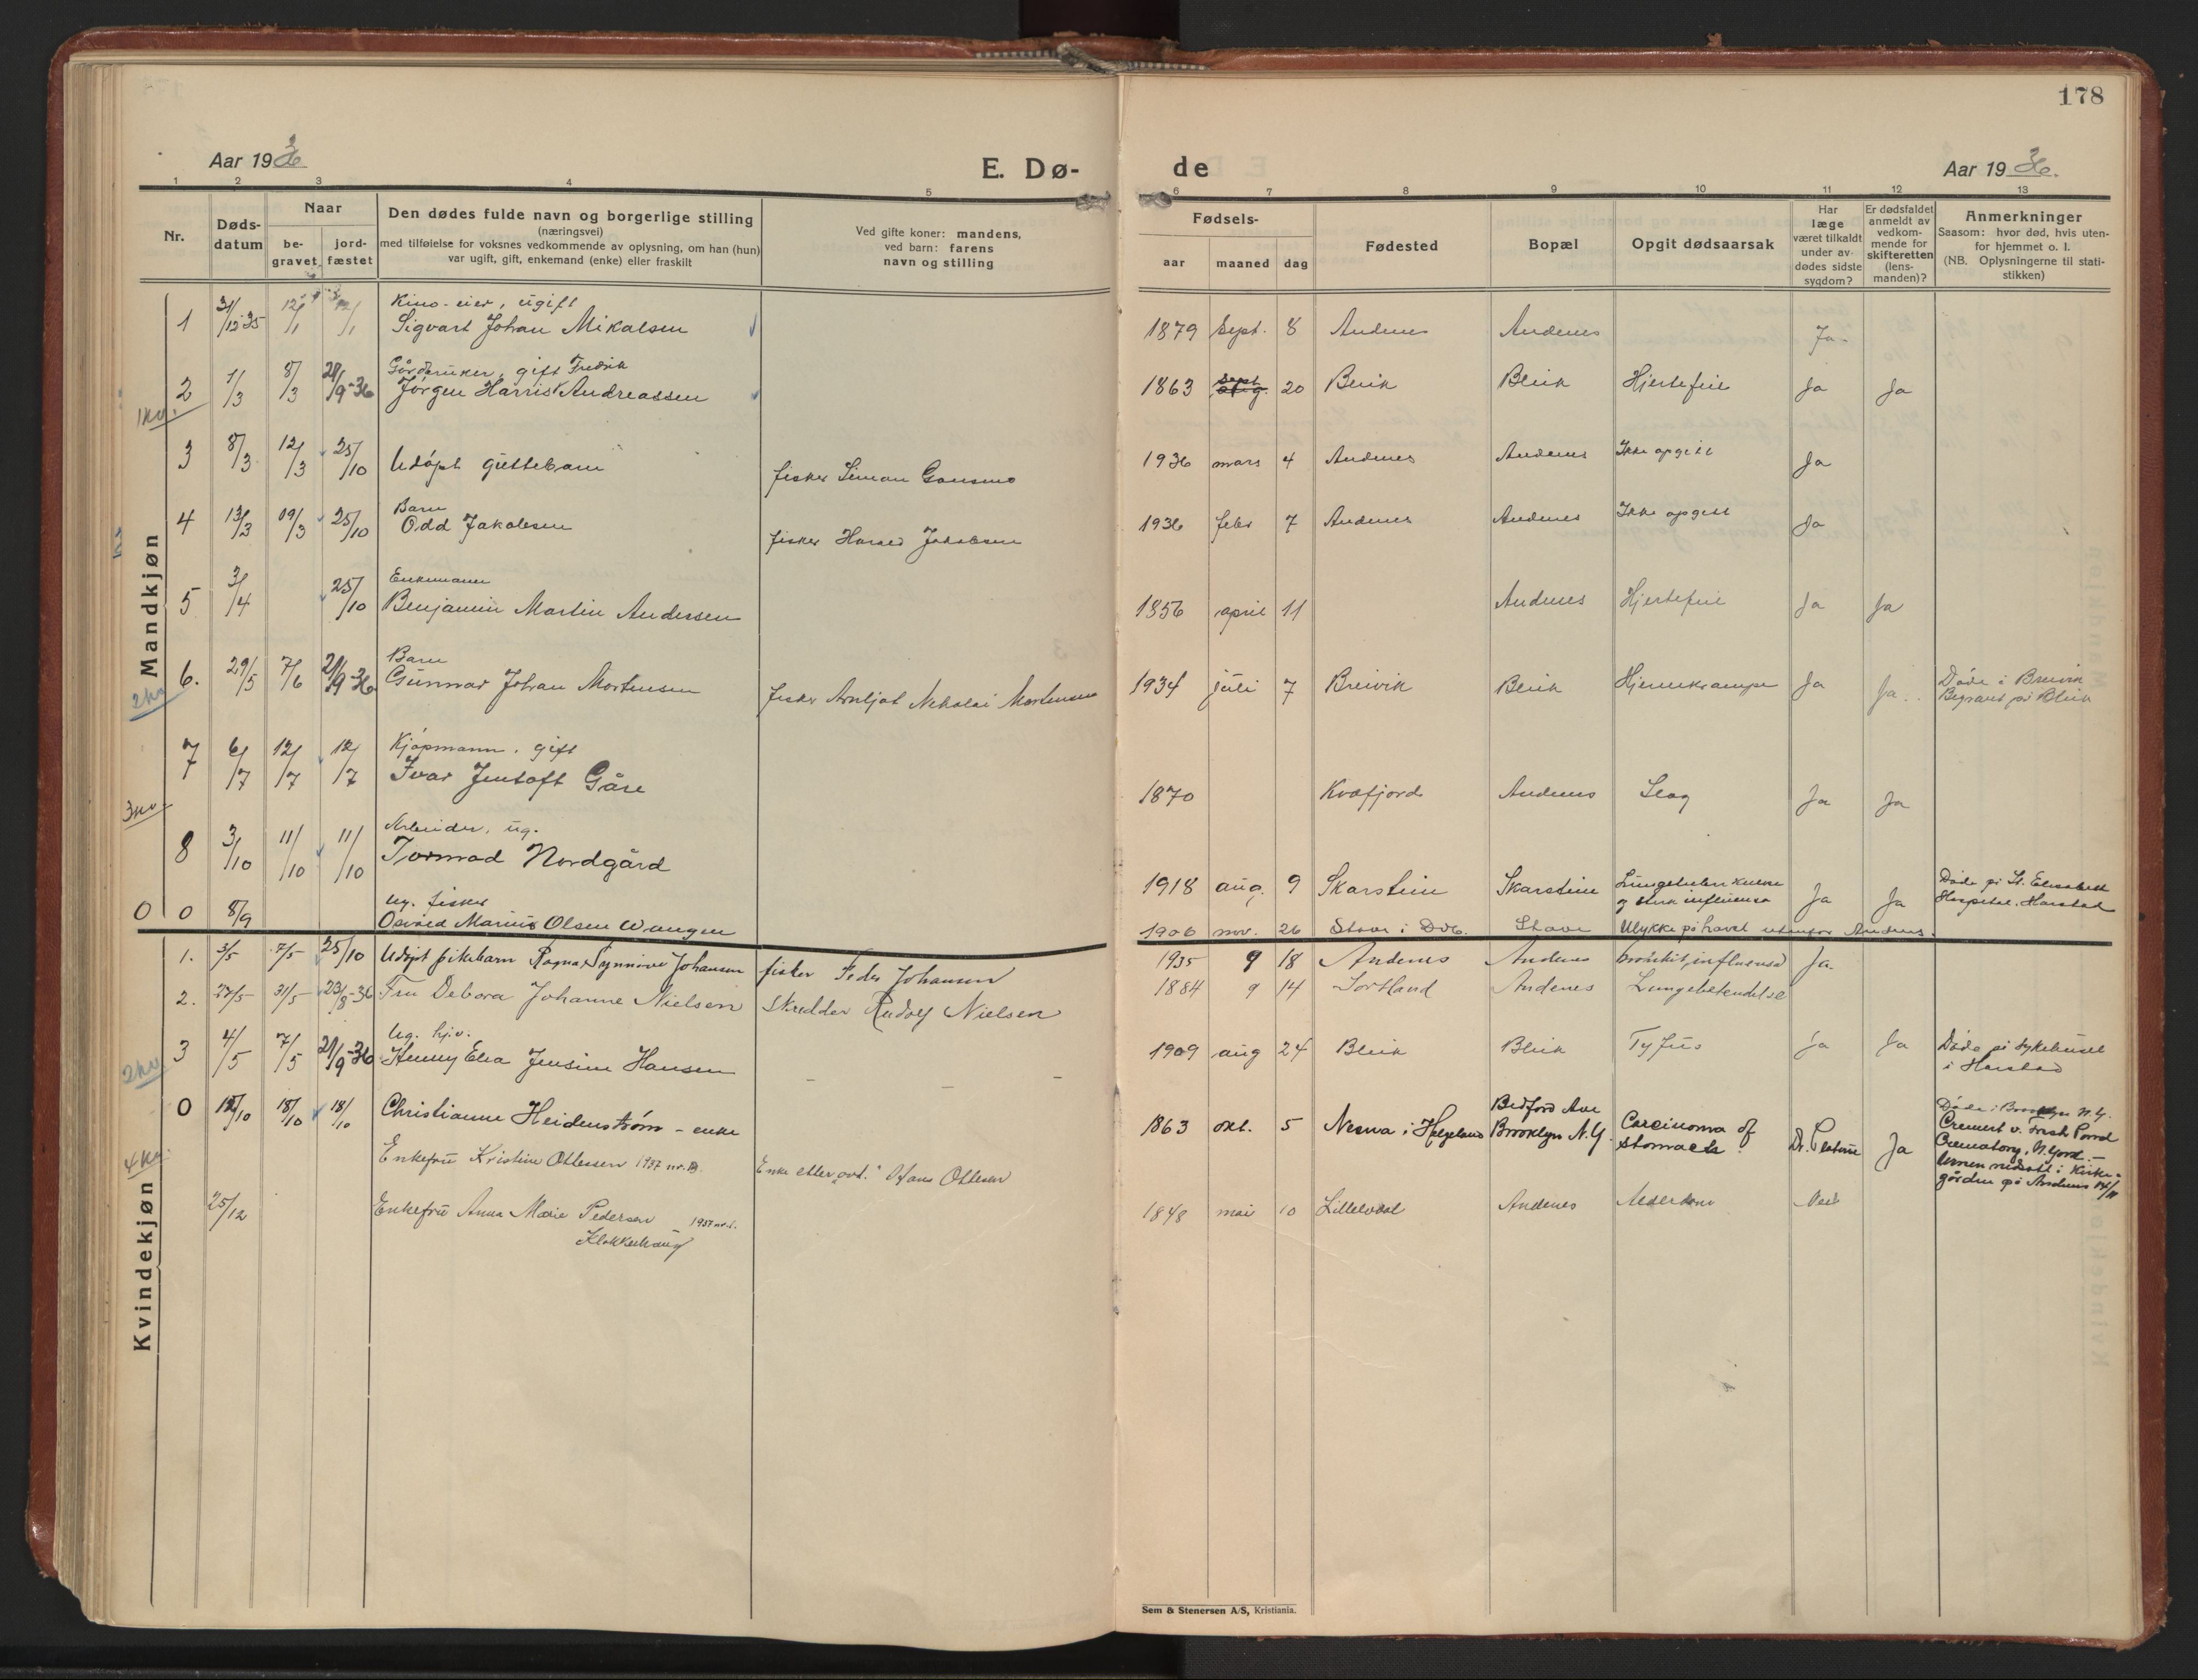 178
Aar 1936
E. Dø-
de
Aar 1936.
1 2 3 4 5 6 7 8 9 10 11 12 13
Nr.
Døds-
datum
Naar
be-
gravet
jord-
fæstet
Den dødes fulde navn og borgerlige stilling
(næringsvei)
med tilføielse for voksnes vedkommende av oplysning, om han (hun)
var ugift, gift, enkemand (enke) eller fraskilt
Ved gifte koner: mandens,
ved barn: farens
navn og stilling
Fødsels-
aar maaned dag
Fødested
Bopæl
Opgit dødsaarsak
Har
læge
været tilkaldt
under av-
dødes sidste
sygdom?
Er dødsfaldet
anmeldt av
vedkom-
mende for
skifteretten
(lens-
manden)?
Anmerkninger
Saasom: hvor død, hvis uten-
for hjemmet o. l.
(NB. Oplysningerne til stati-
stikken)
Mandkjøn
Kino-eier, ugift
1 31/12-35 12/1 12/1 Sigvart Johan Mikalsen 1879 Sept. 8 Andenes Andenes Ja
Gårdbruker, gift Fredrik
2 1/3 8/3 21/9-36 Jørgen Harris Andreassen 1863 Sept. 20 Bleik Bleik Hjertefeil Ja Ja
1 kv.
3 8/3 12/3 25/10 Udøpt guttebarn fisker Simon Gansmo 1936 mars 4 Andenes Andenes Ikke opgitt Ja
Barn
4 13/3 19/3 25/10 Odd Jakobsen fisker Harald Jakobsen 1936 febr 7 Andenes Andenes Ikke opgitt Ja
Enkemann
5 3/4 25/10 Benjamin Martin Andersen 1856 april 11 Andenes Hjertefeil Ja Ja
Barn
6. 29/5 7/6 21/9-36 Gunnar Johan Mortensen fisker Arnljot Nikolai Mortensen 1934 juli 7 Breivik Bleik Hjernekrampe Ja Ja. Døde i Breivik
Begravet på Bleik
2 kv
Kjøpmann, gift
7 6/7 12/7 12/7 Ivar Jentoft Gåre 1870 Kvæfjord Andenes Slag Ja Ja
3 kv
Arbeider, ug.
8 3/10 11/10 11/10 Tormod Nordgård 1918 aug. 9 Skarstein Skarstein Lungetuberkulose
og sterk influensa Ja Ja Døde på St. Elisabeth
Hospital, Harstad
ug. fisker
0 0 8/9 Osvald Marius Olsen Wangen 1906 nov. 26 Stave i Dvb. Stave Ulykke på havet utenfor Andenes.
Kvindekjøn
1. 3/5 7/5 25/10 Udøpt pikebarn Ragna Synnøve Johansen fisker Peder Johansen 1935 9 18 Andenes Andenes bronkit, influensa Ja
2. 27/5 31/5 23/8-36 Fru Debora Johanne Nielsen Skredder Rudolf Nielsen 1884 9 14 Sortland Andenes Lungebetendelse
Ug. hj.v.
3 4/5 7/5 21/9-36 Henny Elea Jensine Hansen - - - 1909 aug 24 Bleik Bleik Tyfus ja Ja Døde på sykehuset
i Harstad
2 kv
0 12/10 18/10 18/10 Christianne Heidenstrøm - enke 1863 okt. 5 Nesna i Helgeland Bedford Ave
Brooklyn N.Y. Carcinoma of
stomach. Dr. Ja Døde i Brooklyn N.Y.
Cremert v. Fresh Pond
Crematory, N. York. -
Urnen nedsatt i kirke-
gården på Andenes
4 kv.
Enkefru Kristine Ottessen 1937 nr. Enke etter avd. Hans Ottesen
25/12 Enkefru Anna Marie Pedersen 1937 nr. 1.
Klokkerhaug 1848 mai 10 Lillelvdal Andenes Alderdom Nei
Sem & Stenersen A/S, Kristiania.